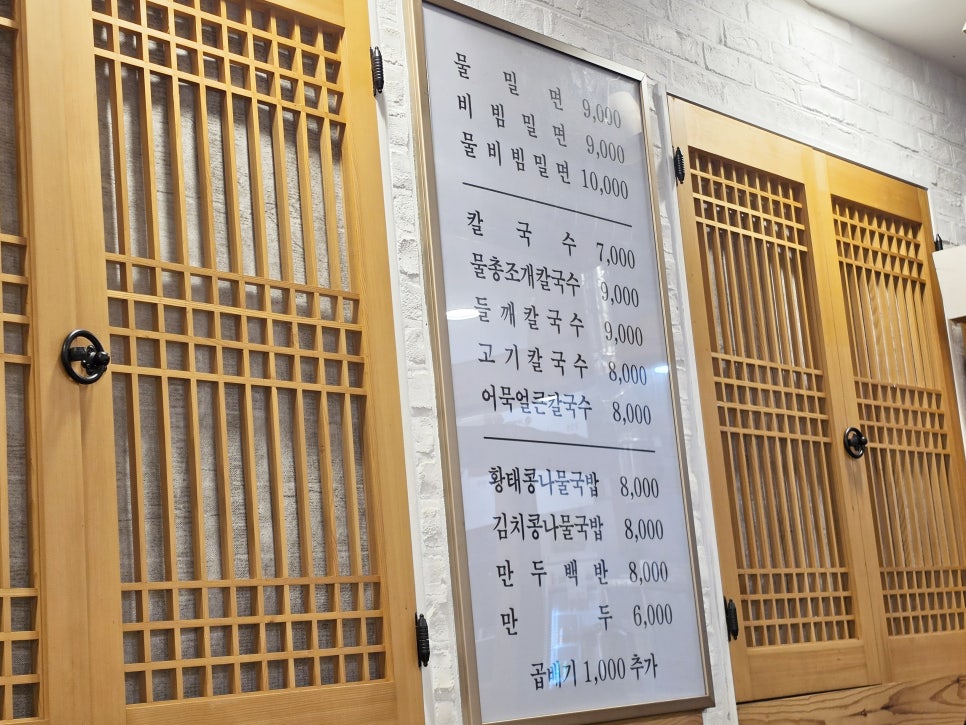 물 밀 면 9,000
비 빔 밀 면 9,000
물 비 빔 밀 면 10,000
칼 국 수 7,000
물총조개칼국수 9,000
들 깨 칼 국 수 9,000
고 기 칼 국 수 8,000
어묵얼큰칼국수 8,000
황태콩나물국밥 8,000
김치콩나물국밥 8,000
만 두 백 반 8,000
만 두 6,000
곱빼기 1,000 추가